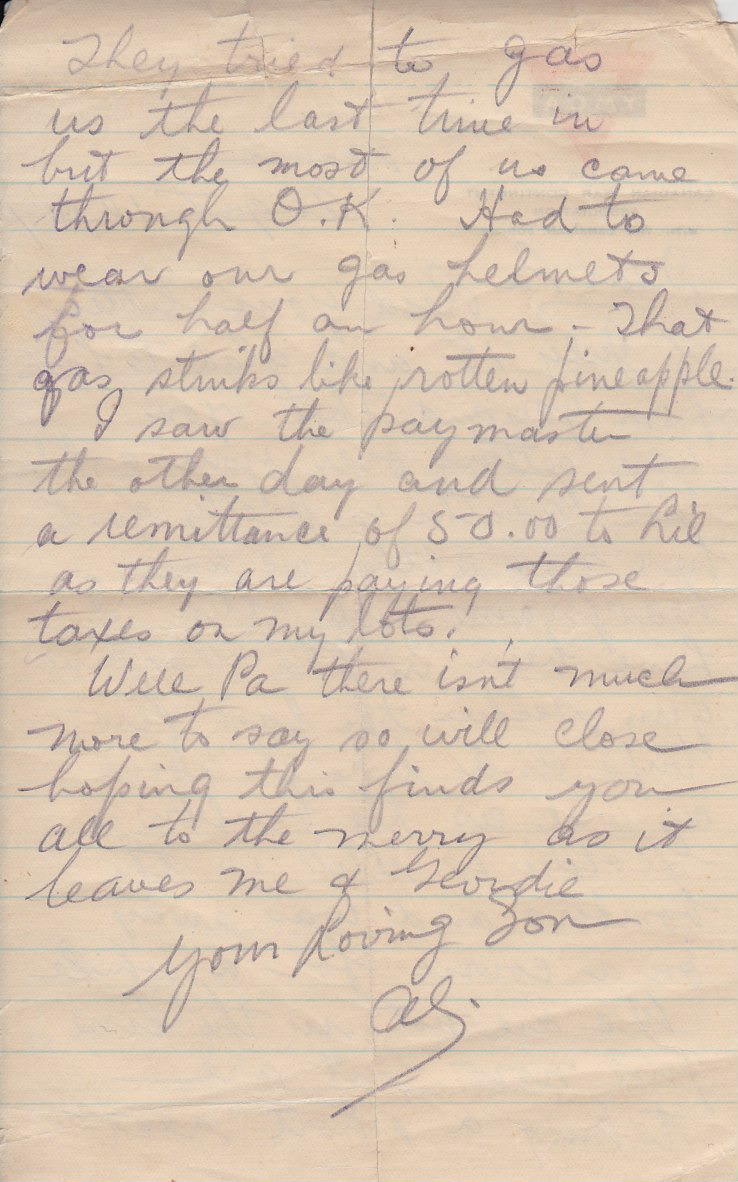 They tried to gas
us the last time in
but the most of us came
through O.K. Had to
wear our gas helmets
for half an hour - That
gas stinks like rotten pineapple.
I saw the paymaster
the other day and sent
a remittance of 50.00 to Lil
as they are paying those
taxes on my lots.
Well Pa there isn't much
more to say so will close
hoping this finds you
all to the merry as it
leaves me & Geordie
Your Loving Son